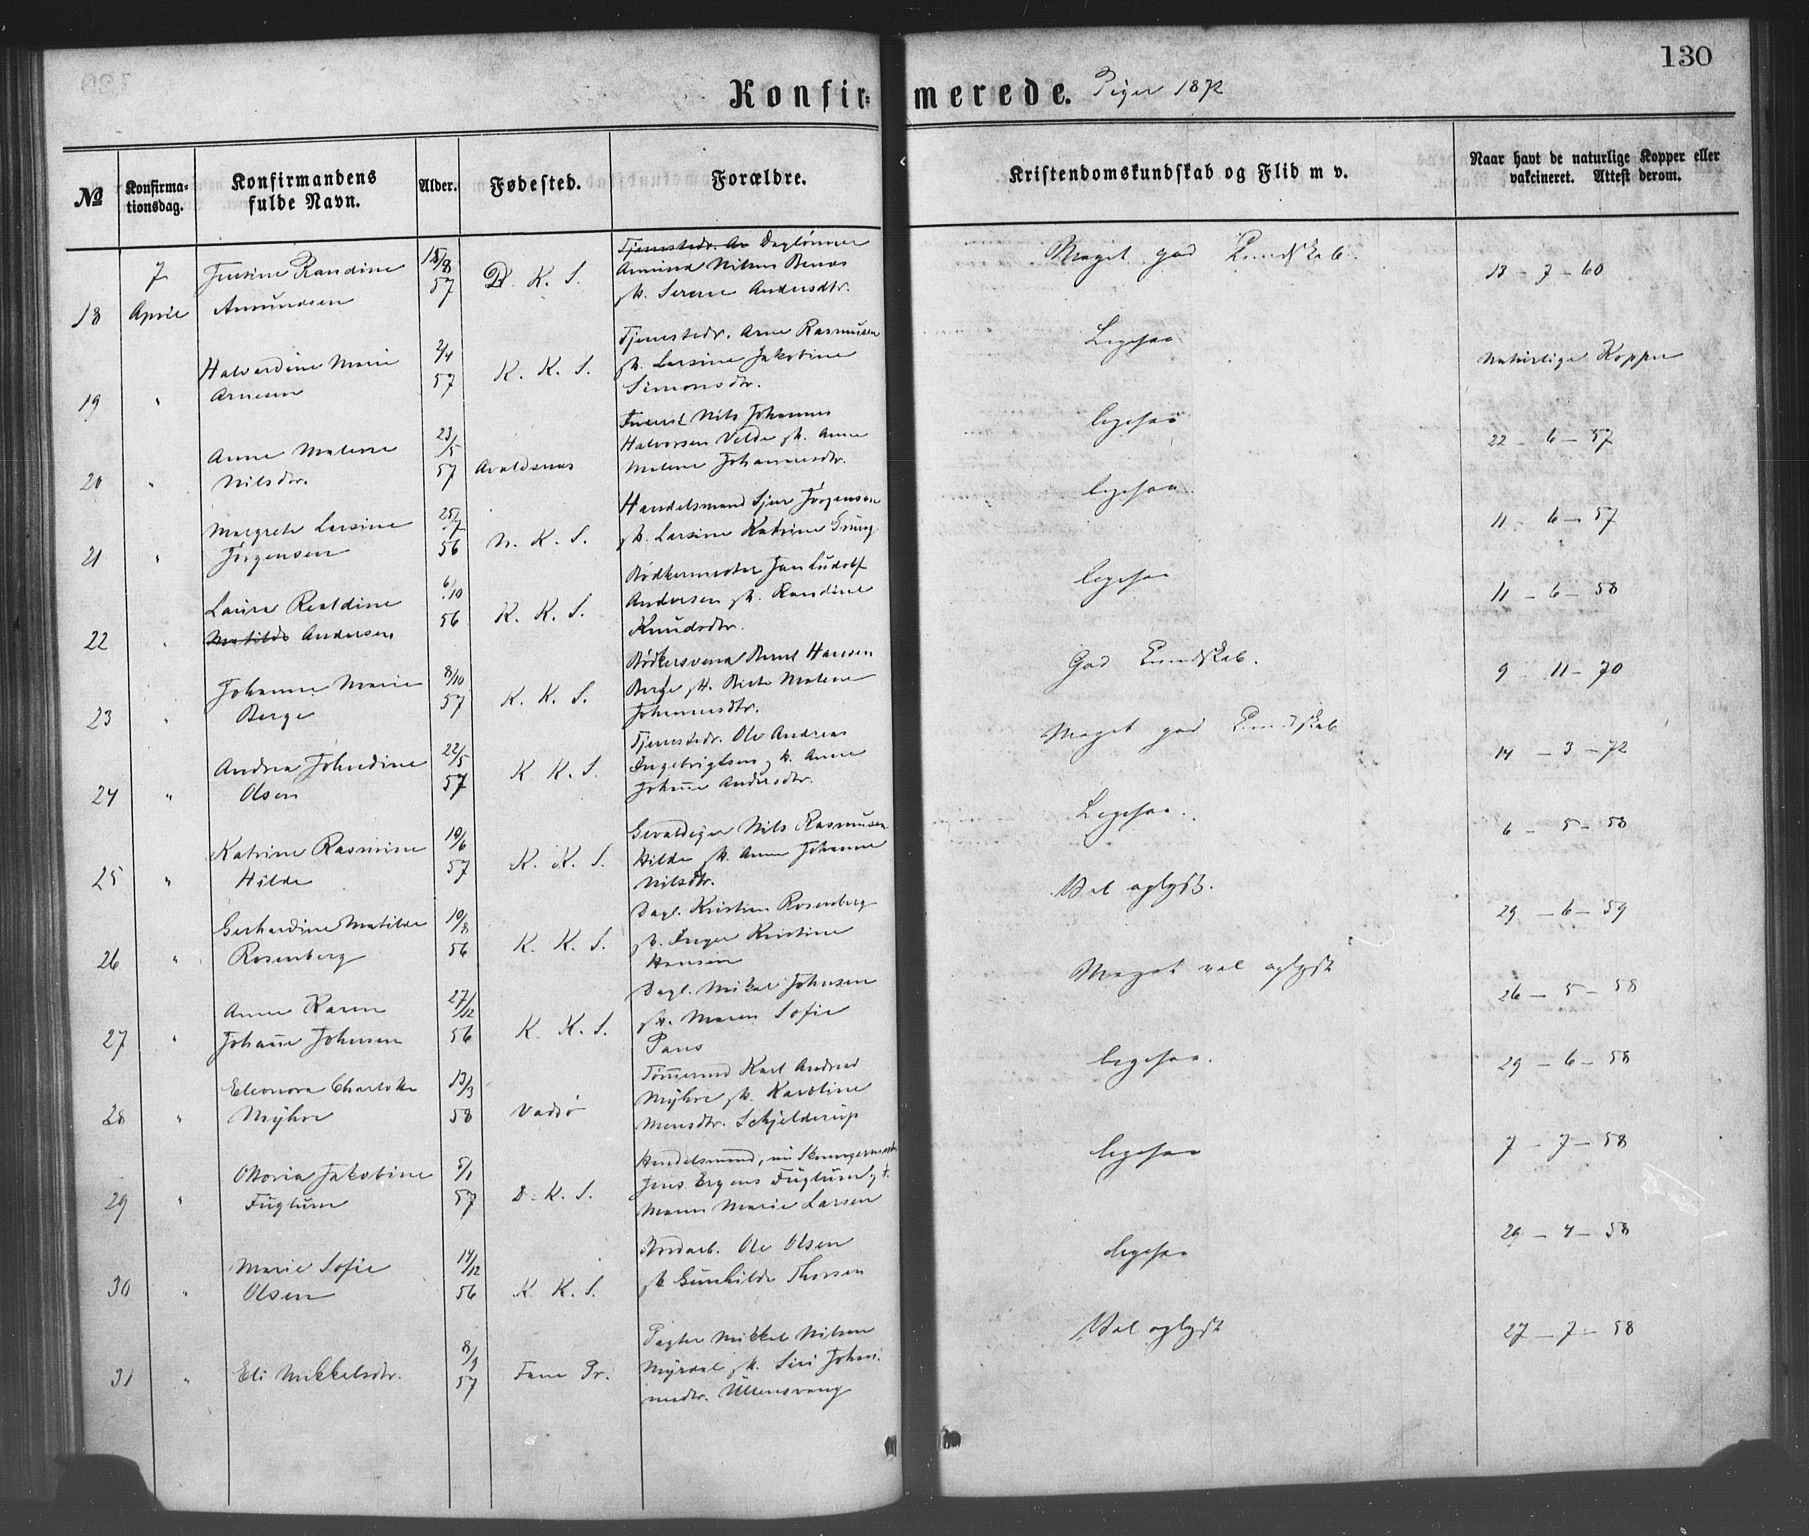 130
Konfirmerede. Piger 1872
No
Konfirmationsdag.
Konfirmandens fulde Navn.
Alder.
Fødested.
Forældre.
Kristendomskundskab og Flid m v.
Naar havt de naturlige Kopper eller vakcineret. Attest derom.
18 7 April
Randine Amundsen
57
D. K. S.
Tjenestedr. Daglønner
Amund Nilsen
Serene Andersdtr.
Meget god Kundskab.
13 - 7 - 60
19 "
Halvardine Marie Arnesen
2/4 57
K. K. S.
Tjenestedr. Arne Rasmusen
Larsine Jakobine
Simonsdtr.
Ligesaa
Naturlige Kopper
20 "
Anne Malene Nilsdtr.
23/5 57
Avaldsnes
Nils Johannes
Halvorsen Velde Anne
Malene Johannesdtr.
ligesaa
22 - 6 - 57
21 "
Margrete Larsine Jørgensen
25/7 56
N. K. S.
Handelsmand Sjur Jørgensen
Larsine Katrine
ligesaa.
11 - 6 - 57
22 "
Matilde Andersen
6/10 56
K. K. S.
Bødkermester Jan Ludolf
Andersen Randine
Knudsdtr.
ligesaa
11 - 6 - 58
23 "
Johanne Marie Berge
8/10 57
K. K. S.
Bødkersvend Bernt Hansen
Berge Berte Malene
Johannesdtr.
God Kundskab.
9 - 11 - 70
24 "
Andrea Johndine Olsen
22/5 57
K K. S.
Tjenestedr. Ole Andreas
Ingebrigtsen Anne
Johanne Andersdtr.
Meget god Kundskab
14 - 3 - 72
25 "
Katrine Rasmine Hilde
19/6 57
K. K. S.
Gevaldiger Nils Rasmusen
Hilde Anne Johanne
Nilsdtr.
Ligesaa.
6 - 5 - 58
26 "
Gerhardine Matilde Rosenberg
19/8 56
K. K. S.
Dagl. Kristian Rosenberg
Inger Kristine
Hansen
Vel oplyst.
29 - 6 - 59
27 "
Anne Karen Johanne Johnsen
27/12 56
K. K. S.
Dagl. Mikal Johnsen
Maren Sofie
Meget vel oplyst
26 - 5 - 58
28 "
Eleonora Charlotte Myhre
13/3 58
Vadsø
Tømmermd Karl Andreas
Myhre Karoline
Monsdtr. Schjelderup
ligesaa.
29 - 6 - 58
29 "
Maria Jakobine Fuglum
5/1 57
D. K. S.
Handelsmand,
Jens Fuglum
Maren Marie Larsen
ligesaa
7 - 7 - 58
30 "
Marie Sofie Olsen
14/12 56
K. K. S.
Ole Olsen
Gunhilde Thorsen
ligesaa
29 - 4 - 58
31 "
Eli Mikkelsdtr.
8/9 57
Fane Pr.
Pagter Mikkel Nilsen
Myrdal Siri
Ullensvang
Vel oplyst
27 - 7 - 58